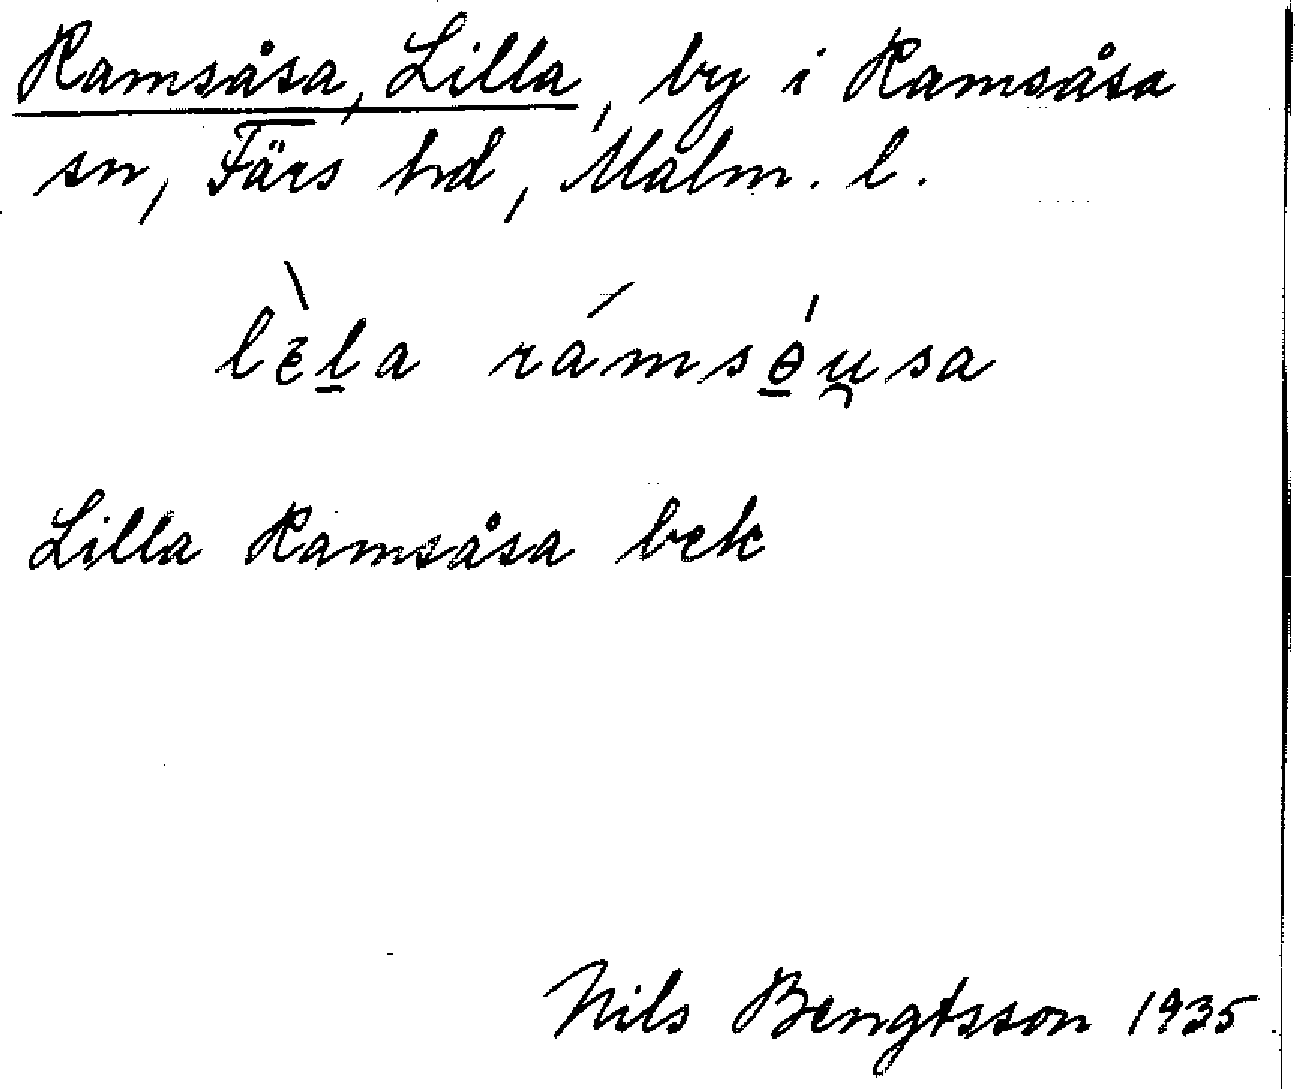 Ramsåsa, Lilla, by i Ramsåsa
sn, Färs hd, Malm. l.
lɛ̀l̠a rámsө̠́u̯sa
Lilla Ramsåsa bek
Nils Bengtsson 1935